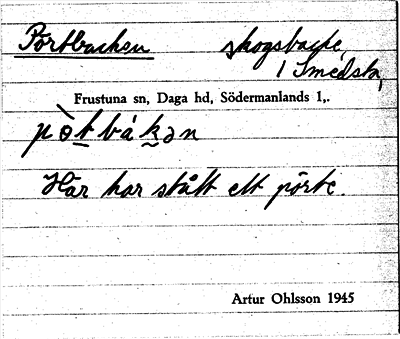 Portbacken skogsbacke,
i Smedsta,
Frustuna sn, Daga hd, Södermanlands l,.
pò̱ṯbák̰ən
Här har stått ett pörte.
Artur Ohlsson 1945